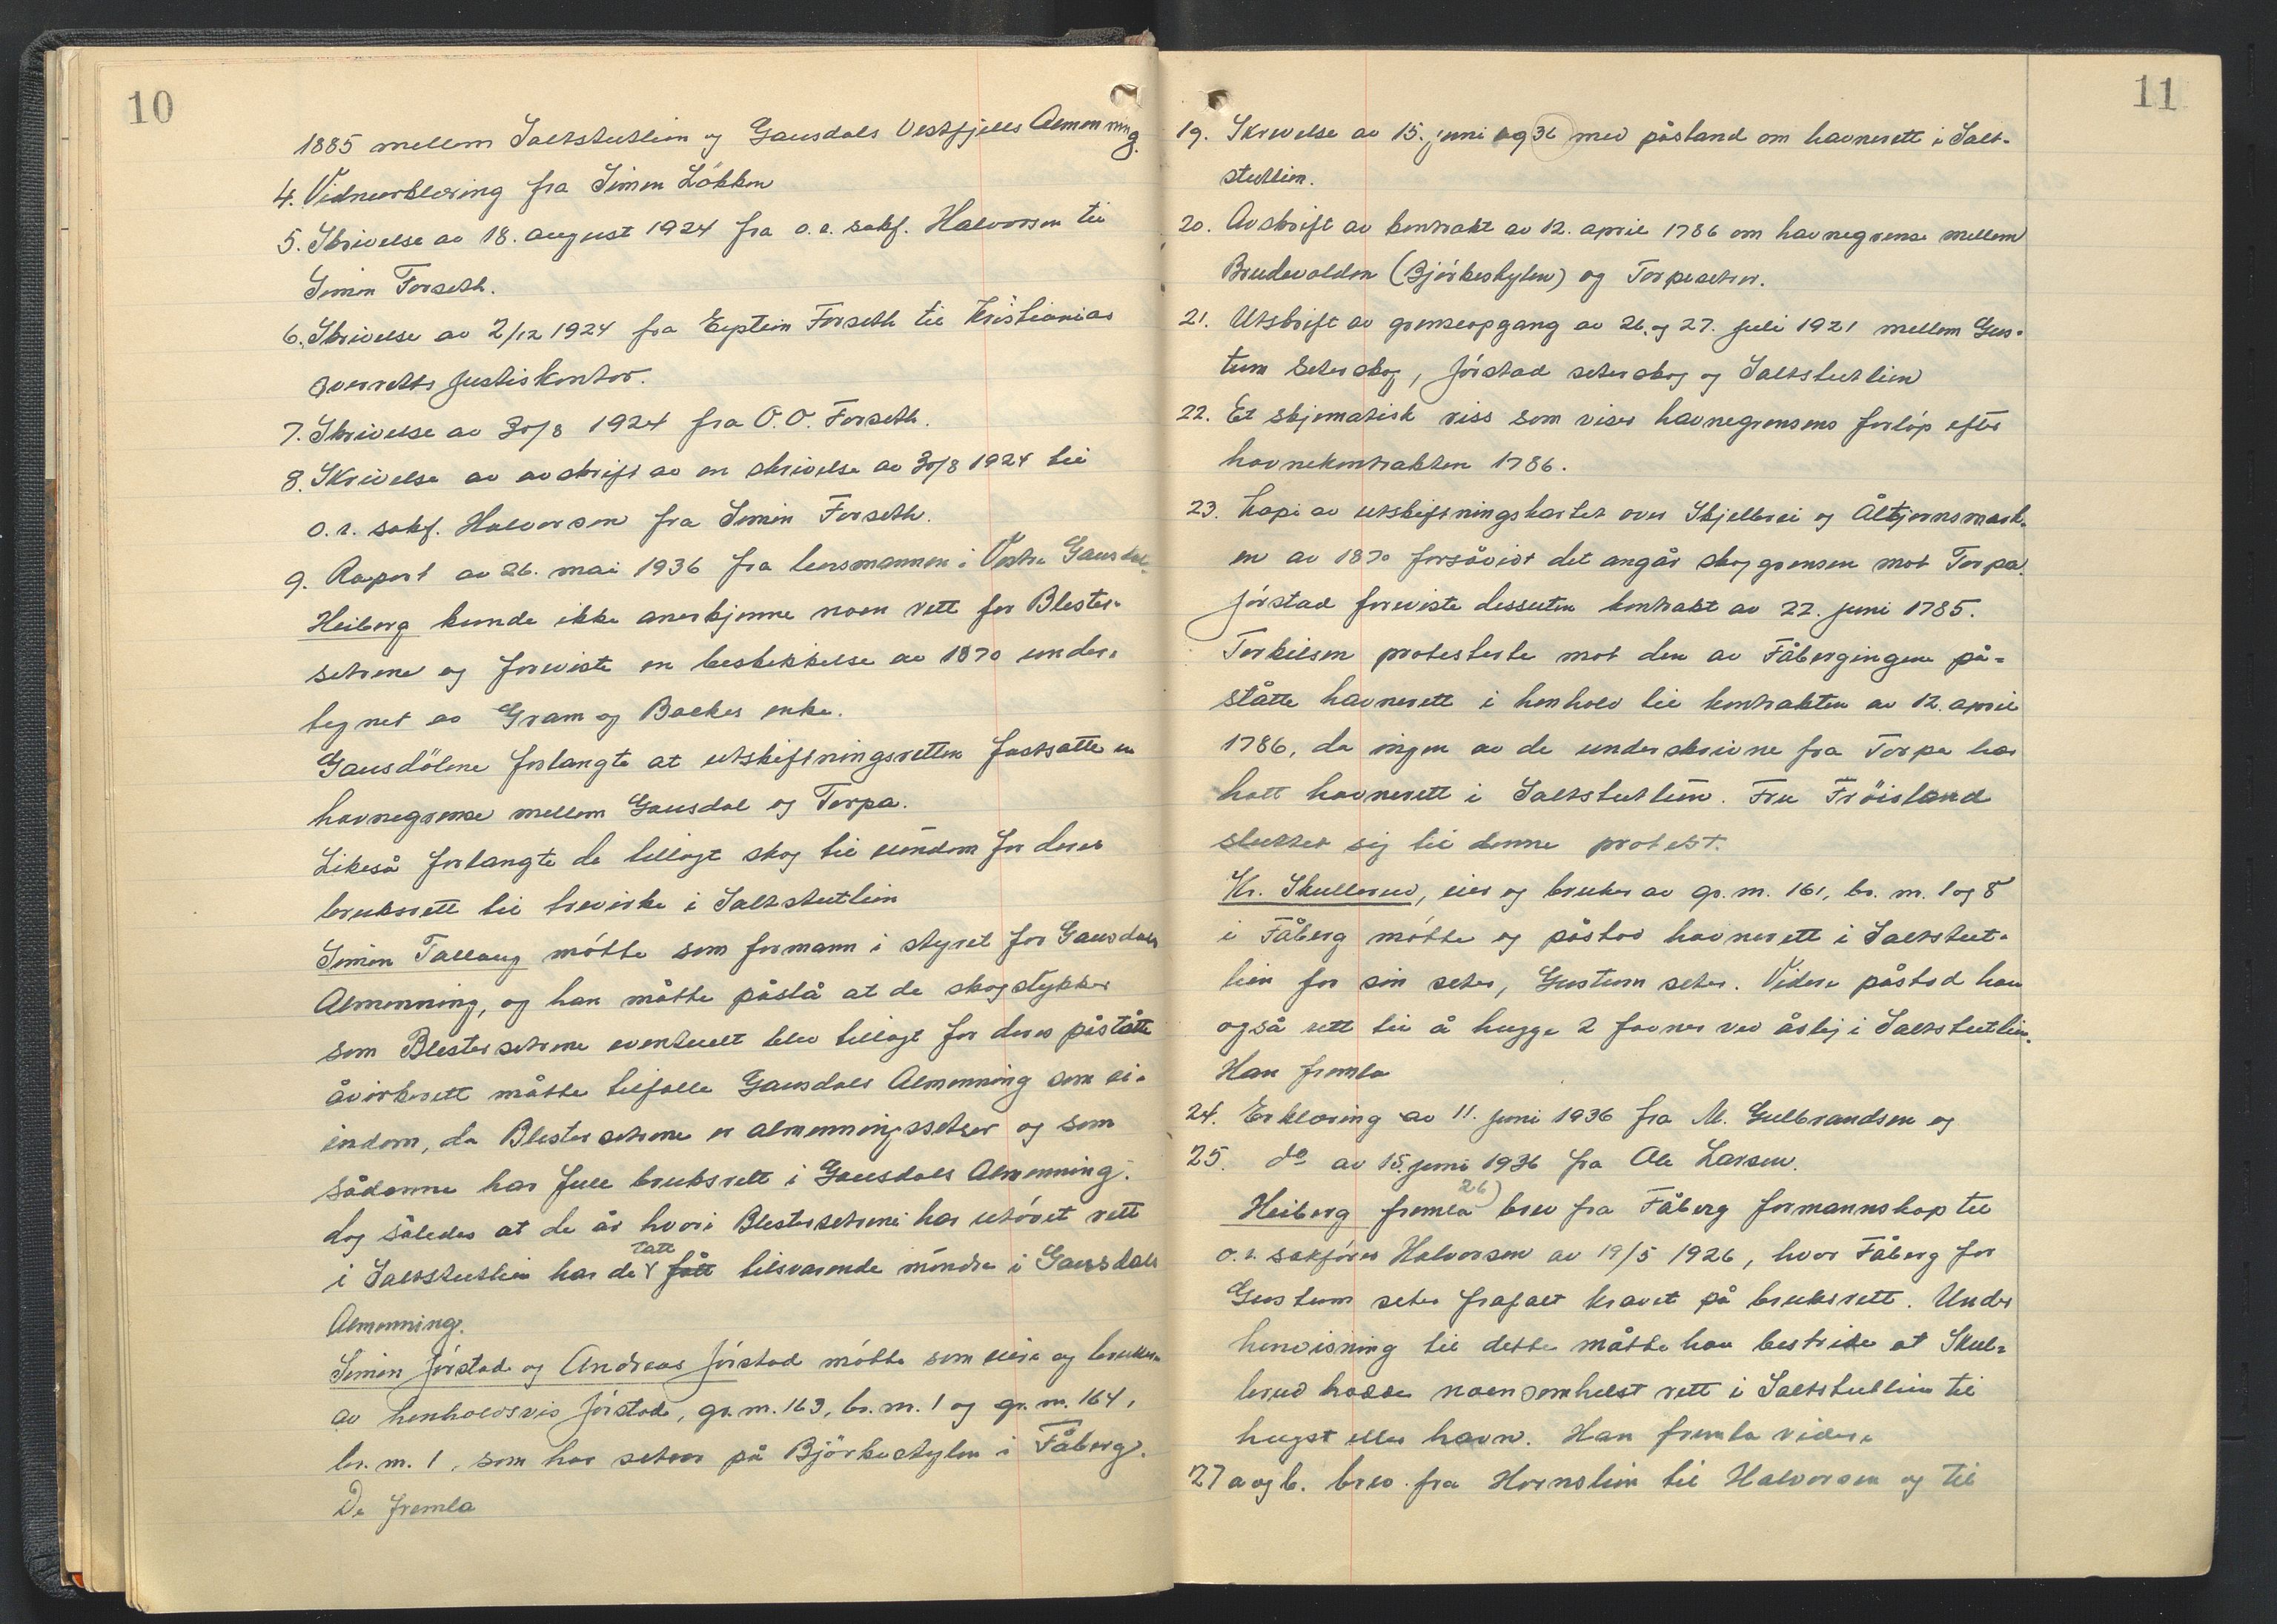 10
1885 mellem Saltstutlien og Gausdals Vestfjells Almenning.
4. Vidneerklæring fra Simen Løkken
5. Skrivelse av 18. august 1924 fra o.r. sakf. Halvorsen til
Simen Forseth.
6. Skrivelse av 2/12 1924 fra Eystein Forseth til Kristianias
overretts justiskontor.
7. Skrivelse av 30/8 1924 fra O.O. Forseth.
8. Skrivelse av avskrift av en skrivelse av 30/8 1924 til
o.r. sakf. Halvorsen fra Simen Forseth.
9. Raport av 26. mai 1936 fra lensmannen i Vestre Gausdal.
Heiberg kunde ikke anerkjenne noen rett for Blester-
setrene og foreviste en beslikkelse av 1870 under-
tegnet av Gram og Backes enke.
Gausdölene forlangte at utskiftningsretten fastsatte en
havnegrense mellem Gausdal og Torpa.
Likeså forlangte de tillagt skog til eiendom for deres
bruksrett til trevirke i Saltstutlien
Simen Tallaug møtte som formann i styret for Gausdals
Almenning, og han måtte påstå at de skogstykker
som Blestersetrene eventuelt blev tillagt for deres påståtte
åvirkerett måtte tilfalle Gausdals Almenning som ei-
endom, da Blestersetrene er almenningssetrer og som
sådanne har full bruksrett i Gausdals Almenning.
dog således at de år hvori Blestersetrene har utövet rett
i Saltstutlien har de tatt fått tilsvarende mindre i Gausdals
Almenning.
Simen Jørstad og Andreas Jørstad møtte som eiere og brukere
av henholdsvis Jørstad, gr.m. 163, br.m. 1 og gr.m. 164,
br.m. 1, som har setrer på Björkestylen i Fåberg.
De fremla
11
19. Skrivelse av 15. juni og 36 med påstand om havnerett i Salt-
stutlien.
20. Avskrift av kontrakt av 12. april 1786 om havnegrense mellem
Brudevolden (Bjørkestylen) og Torpesetrer.
21. Utskrift av grenseopgang av 26. og 27. juli 1921 mellem Gus-
tum Seterskog, Jørstad seterskog og Saltstutlien
22. Et skjematisk riss som viser havnegrensens forløp efter
havnekontrakten 1786.
23. Kopi av utskiftningskartet over Skjellbrei og Åltjernsmark-
en av 1870 forsåvidt det angår skoggrensen mot Torpa.
Jørstad foreviste dessuten kontrakt av 22. juni 1785.
Torkilsen protesterte mot den av Fåbergingene på-
ståtte havnerett i henhold til kontrakten av 12. april
1786, da ingen av de underskrivne fra Torpa har
hatt havnerett i Saltstutlien. Fru Fröisland
sluttet sig til denne protest.
Kr. Skullerud, eier og bruker av gr.m. 161, br.m. 1 og 8
i Fåberg møtte og påstod havnerett i Saltstut-
lien for sin seter, Gustum seter. Videre påstod han
også rett til å hugge 2 favner ved årlig i Saltstutlien.
Han fremla
24. Erklæring av 11. juni 1936 fra M. Gulbrandsen og
25. do av 15. juni 1936 fra Ole Larsen.
Heiberg fremla 26) brev fra Fåberg formannskap til
o.r. sakfører Halvorsen av 19/5 1926, hvor Fåberg for
Gustum seter frafalt kravet på bruksrett. Under
henvisning til dette måtte han bestride at Skul-
lerud hadde noensomhelst rett i Saltstutlien til
hugst eller havn. Han fremla videre
27 a og b. brev fra Hornslien til Halvorsen og til